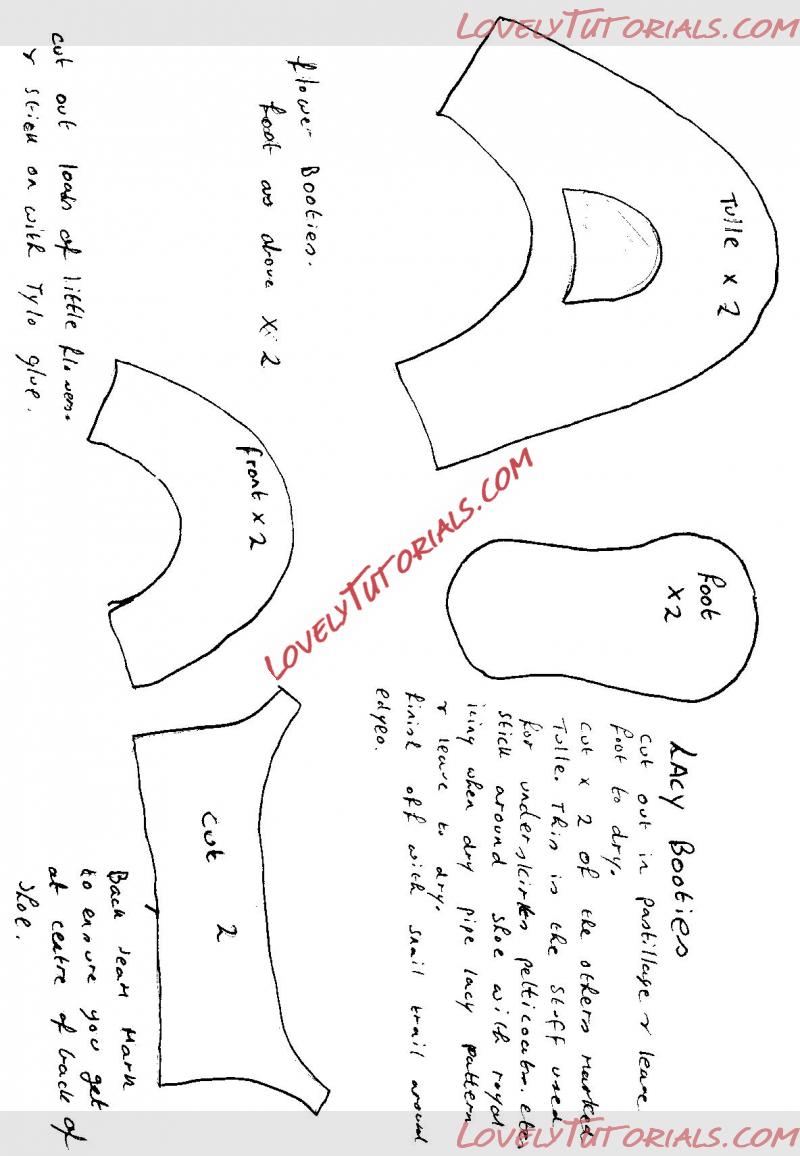 LOVELYTUTORIALS.COM
Tulle x 2
Foot
x2
LACY Booties
Cut out in pastillage & leave
foot to dry.
Cut x 2 of the others marked
Tulle. This is the stuff used
for underskirts petticoats. etc
stick around shoe with royal
icing when dry pipe lacy pattern
& leave to dry.
finish off with snail trail around
edges.
Flower Booties.
foot as above x 2
cut out loads of little flowers.
& stick on with Tylo glue.
front x 2
LOVELYTUTORIALS.COM
Cut 2
Back seam Mark
to ensure you get
at centre of back of
shoe.
LOVELYTUTORIALS.COM